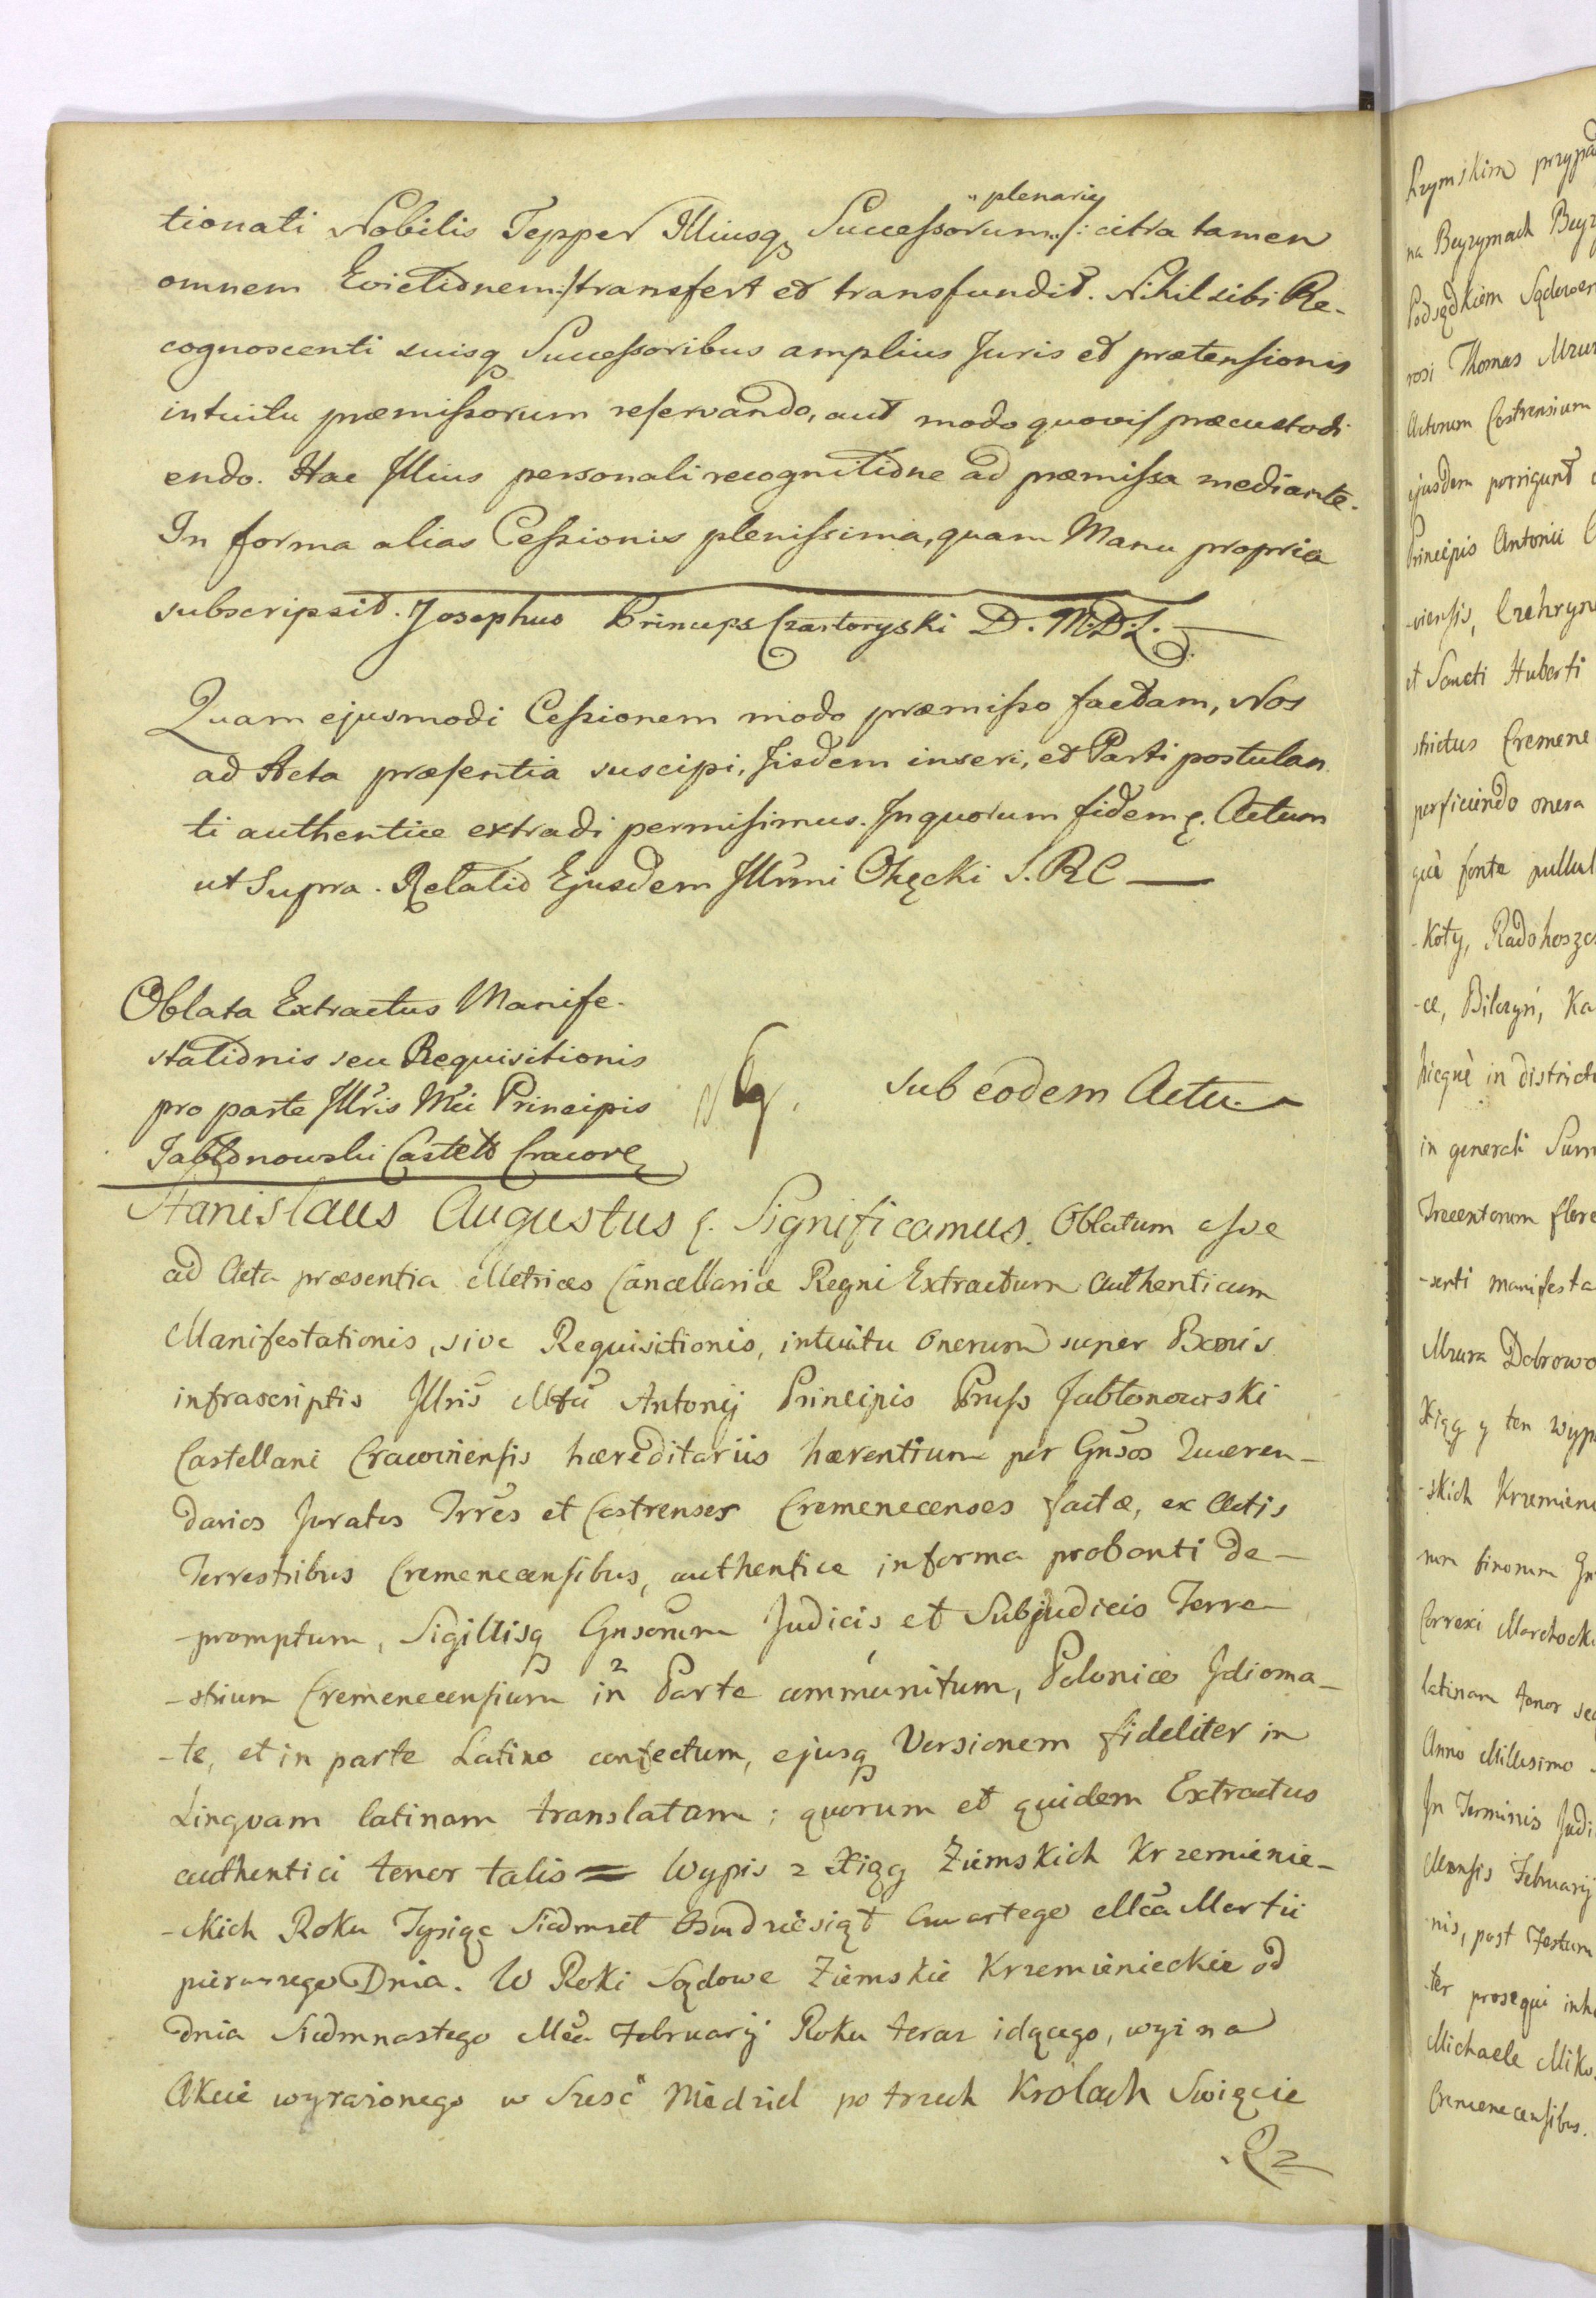 tionati Nobilis Tepper Illiusq Successorum „plenarie /: citra tamen
omnem Evictionem :/ transfert et transfundit. Nihil sibi Re-
cognoscenti suisq Successoribus amplius Juris et prætensionis
intuitu præmissorum reservando, aut modo quovis præcustodi
endo. Hac Illius personali recognitione ad præmissa mediante.
In forma alias Cessionis plenissima, quam Manu propria
subscripsit. Josephus Princeps Czartoryski D. M. D. L.
Quam ejusmodi Cessionem modo præmisso factam, Nos
ad Acta præsentia suscipi, Iisdem inseri, et Parti postulan
ti authentice extradi permisimus. In quorum fidem &. Actum
ut Supra. Relatio Ejusdem Illrmi Okęcki S. R C
Oblata Extractus Manife-
stationis seu Requisitionis
pro parte Illris Mci Principis
Jabłonowski Castell Cracov
sub eodem Actu.
Stanislaus Augustus &. Significamus. Oblatum esse
ad Acta præsentia Metrices Cancellariæ Regni Extractum Authenticum
Manifestationis, sive Requisitionis, intuitu Onerum super Bonis
infrascriptis Illris Mfci Antonij Principis Pruss Jabłonowski
Castellani Cracoviensis hæreditariis hærentium per Gnsos Quæren-
darios Juratos Trres et Castrenses Cremenecenses factæ, ex Actis
Terrestribus Cremenecensibus, authentice in forma probanti de-
-promptum, Sigillisq Gnsorum Judicis et Subjudicis Terre
-strium Cremenecensium in 2 Parte communitum, Polonico Idioma-
-te, et in parte Latino confectum, ejusq Versionem fideliter in
Linguam latinam translatam; quorum et quidem Extractus
authentici tenor talis = Wypis z Xiąg Ziemskich Krzemienie-
-ckich Roku Tysiąc Siedmset Osmdziesiąt Czwartego Mca Martii
pierwszego Dnia. W Roki Sądowe Ziemskie Krzemienieckie od
dnia Siedmnastego Mca Februarij Roku teraz idącego, wyż na
Akcie wyrażonego w Sześć Niedziel po trzech Królach Swięcie
Rz
przypa
na Beyzymach Beyz
Podsędkiem Sądower
rosi Thomas Mzur
Actorum Castrensium
ejusdem porrigunt
Principis Antonii
-viensis, Czehryn
et Sancti Huberti
strictus Cremene
perficiendo onera
què fonte pullul
-koty, Radohoszc
-ce, Bilczyń, Ka
hicquè in district
in generali Sum
Trecentorum flore
-serti manifesta
Mzura Dobrowo
Xiąg y ten wyp
-skich Krzemien
num binorum Gn
Correxi Marchock
latinam tenor se
Anno Millesimo
In Terminis Judi
Mensis Februarij
nis, post Festum
-ter prosequi inh
Michaele Miko
Cremenecensibus.